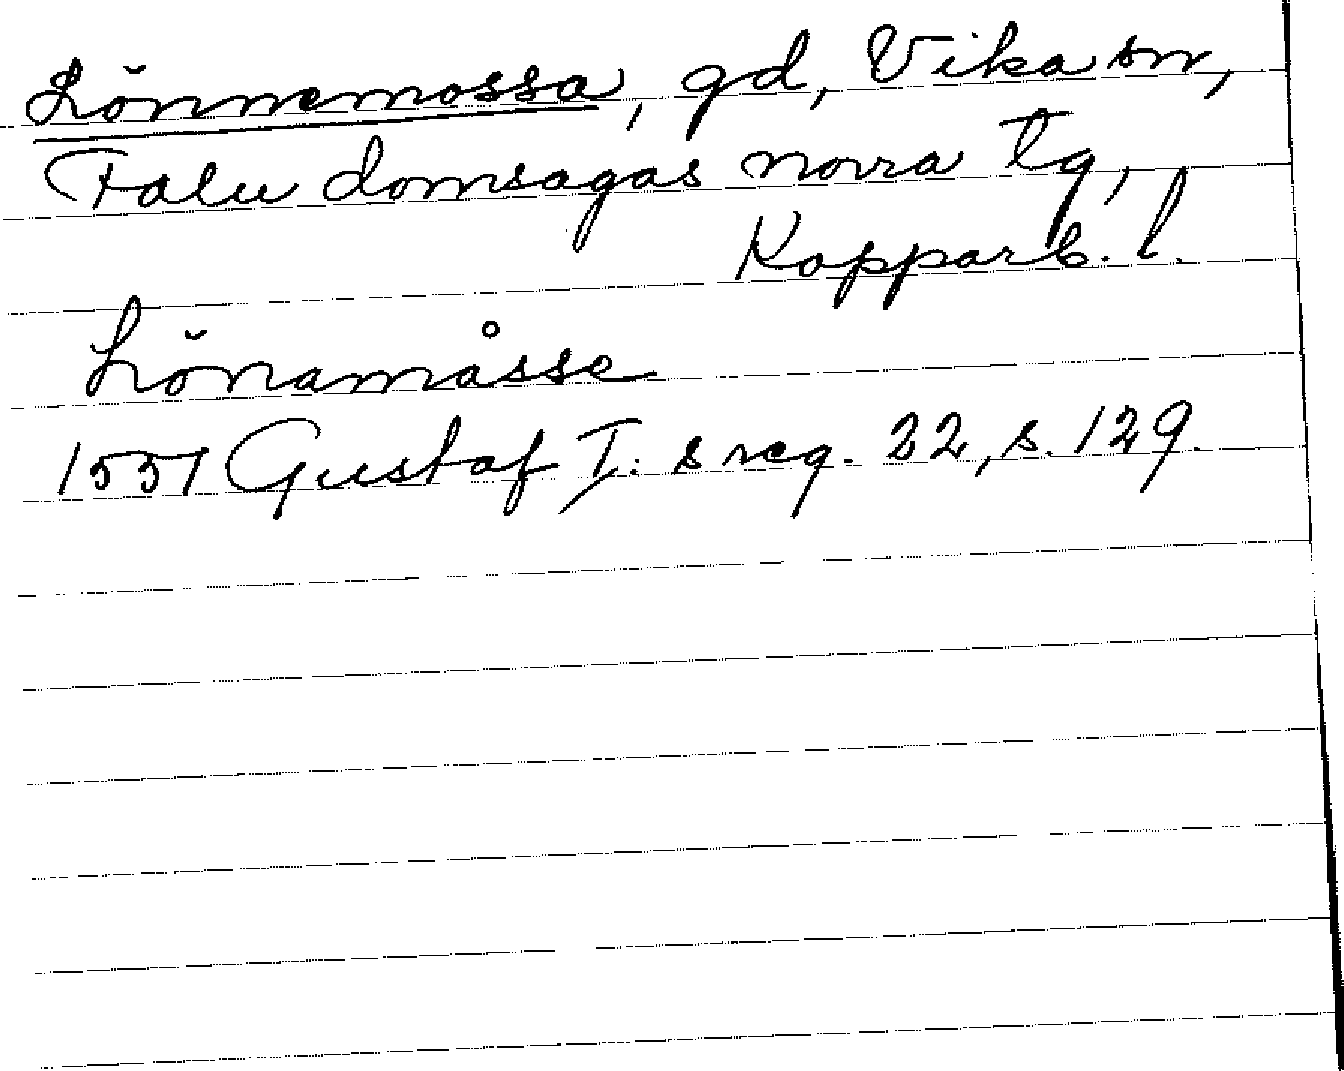 Lönnemossa, gd, Vika sn,
Falu domsagas norra tg,
Kopparb. l.
Lönamåsse
1551 Gustaf I: s reg. 22, s. 129.